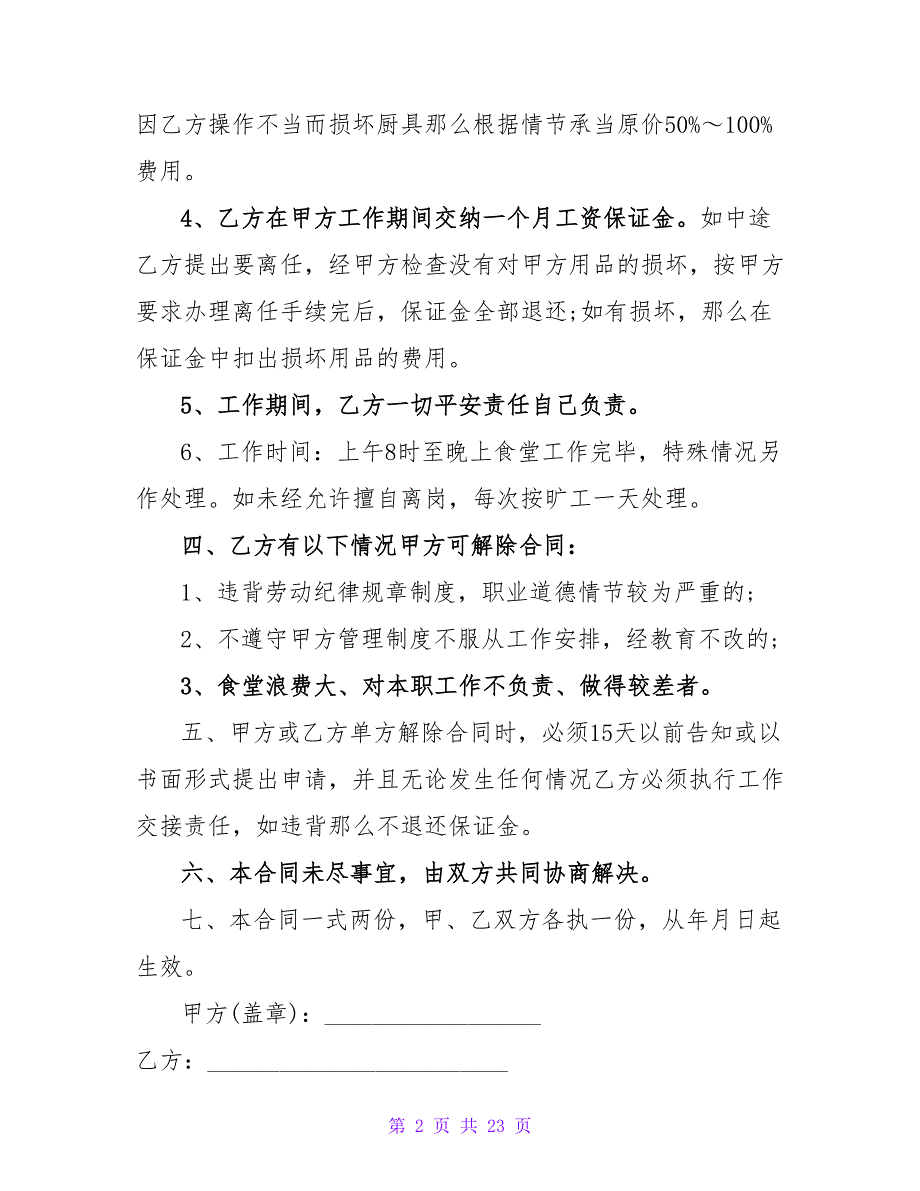 因乙方操作不当而损坏厨具那么根据情节承当原价50%～100%
费用。
4、乙方在甲方工作期间交纳一个月工资保证金。如中途
乙方提出要离任，经甲方检查没有对甲方用品的损坏，按甲方
要求办理离任手续完后，保证金全部退还;如有损坏，那么在
保证金中扣出损坏用品的费用。
5、工作期间，乙方一切平安责任自己负责。
6、工作时间：上午8时至晚上食堂工作完毕，特殊情况另
作处理。如未经允许擅自离岗，每次按旷工一天处理。
四、乙方有以下情况甲方可解除合同：
1、违背劳动纪律规章制度，职业道德情节较为严重的;
2、不遵守甲方管理制度不服从工作安排，经教育不改的;
3、食堂浪费大、对本职工作不负责、做得较差者。
五、甲方或乙方单方解除合同时，必须15天以前告知或以
书面形式提出申请，并且无论发生任何情况乙方必须执行工作
交接责任，如违背那么不退还保证金。
六、本合同未尽事宜，由双方共同协商解决。
七、本合同一式两份，甲、乙双方各执一份，从年月日起
生效。
甲方(盖章)：__________________
乙方：_________________________
第 2 页 共 23 页